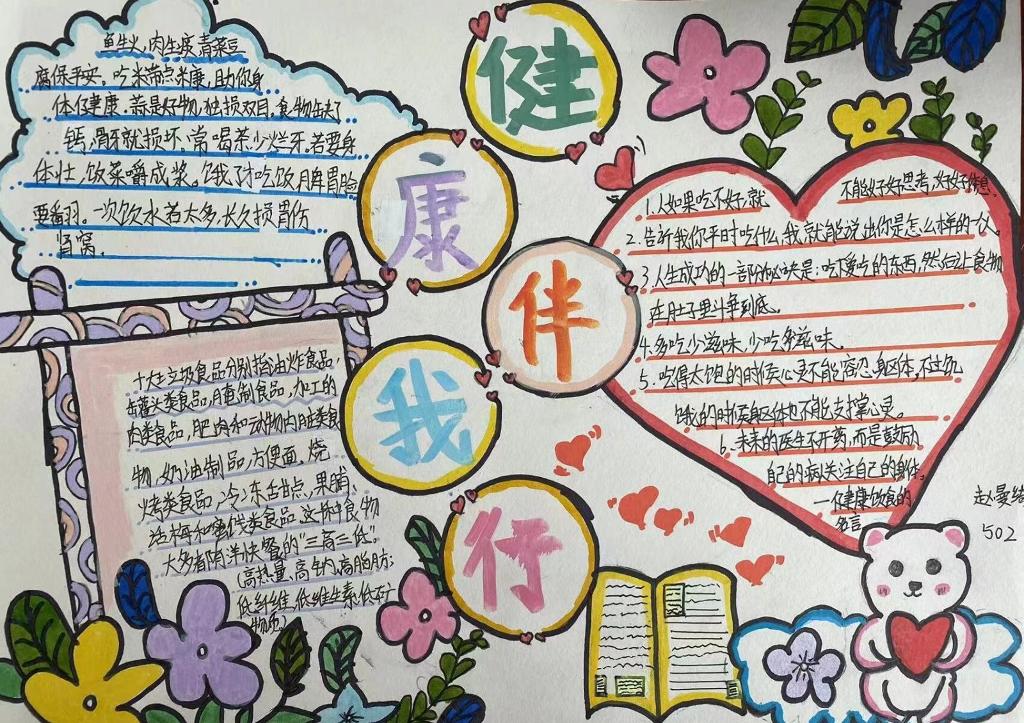 健
康
伴
我
行
鱼生火,肉生痰,青菜豆
腐保平安。吃米带点糠,助你身
体保健康.蒜是好物,独损双目,食物缺
钙,骨牙就损坏,常喝茶,少烂牙,若要身
体壮,饭菜嚼成浆。饿了才吃饭,脾胃脸
要翻羽。一次饮水若太多,长久损胃伤
肾窝。
十大垃圾食品分别指油炸食品,
罐头类食品,腌制食品,加工的
肉类食品,肥肉和动物内脏类食
物,奶油制品,方便面,烧
烤类食品,冷冻甜点,果脯
话梅和蜜饯类食品,这样食物
大多有陷洋快餐的"三高三低"
(高热量、高钠、高脂肪;
低纤维,低维生素,低矿
物地)
1.人如果吃不好,就 不能好好思考,好好休息。
2.告诉我你平时吃什么,我就能说出你是怎么样的一人。
3.人生成功的一部份秘诀是:吃下爱吃的东西,然后让食物
在肚子里斗争到底。
4.多吃少滋味,少吃多滋味。
5.吃得太饱的时候心灵不能容忍身躯体,不过饥
饿的时候身躯体也不能支撑心灵。
6.未来的医生不开药,而是鼓励
自己的病关注自己的身体。
一健康饮食的
名言
赵曼
502